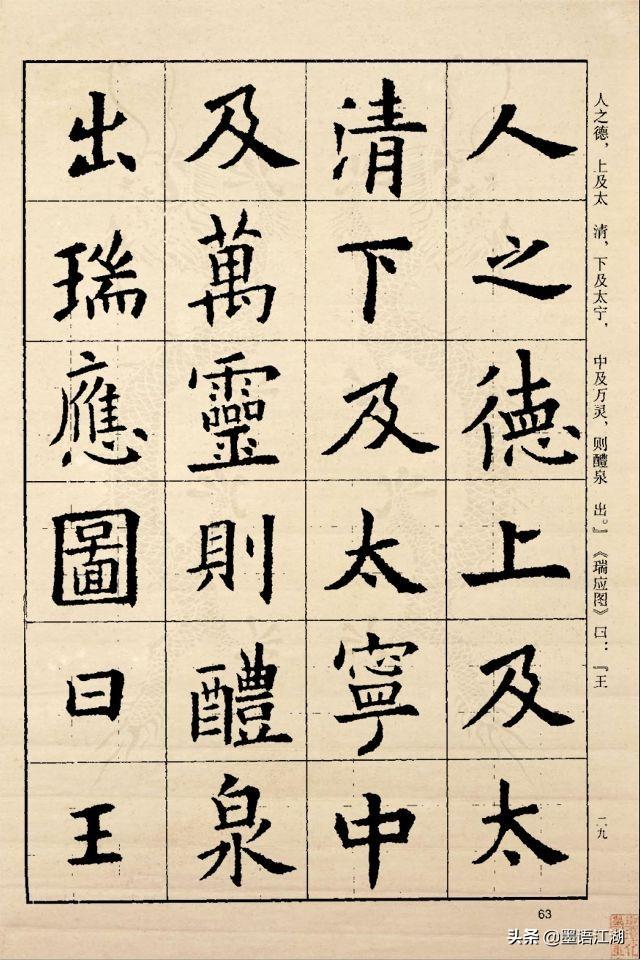 人之德上及太
清下及太寧中
及萬靈則醴泉
出瑞應圖曰王
人之德，上及太 清，下及太宁， 中及万灵，则醴泉 出。』《瑞应图》曰：『王
二九
63
头条 @墨语江湖